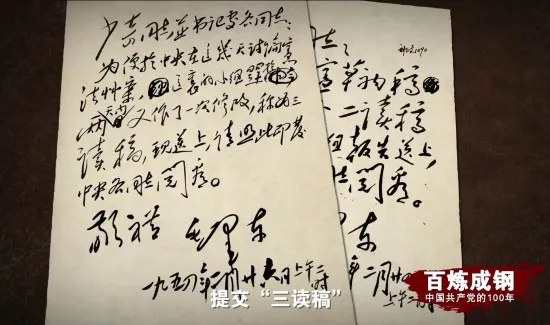 少奇同志并书记处各同志：
为便于中央在这几天讨论宪
法草案，这里的小组
两天内又作了一次修改，称为三
读稿，现送上，请照此印发
中央各同志阅看。
敬礼 毛泽东
一九五四年二月廿六日上午二时
二读稿
报告送上，
阅看。
东
年二月廿
上午二时
提交“三读稿”
百炼成钢
中国共产党的100年